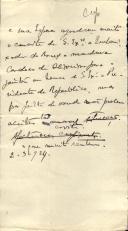 Copo
e sua Esposa agradecem muito
o convite de S. Exª. o Embai-
xador do Brasil e madame
Cardoso de Oliveira para o
jantar em honra de S. Exª. o Pre-
sidente da Republica, mas
por falta de saude não podem
aceitar
o que muito sentem.
2-3-924.